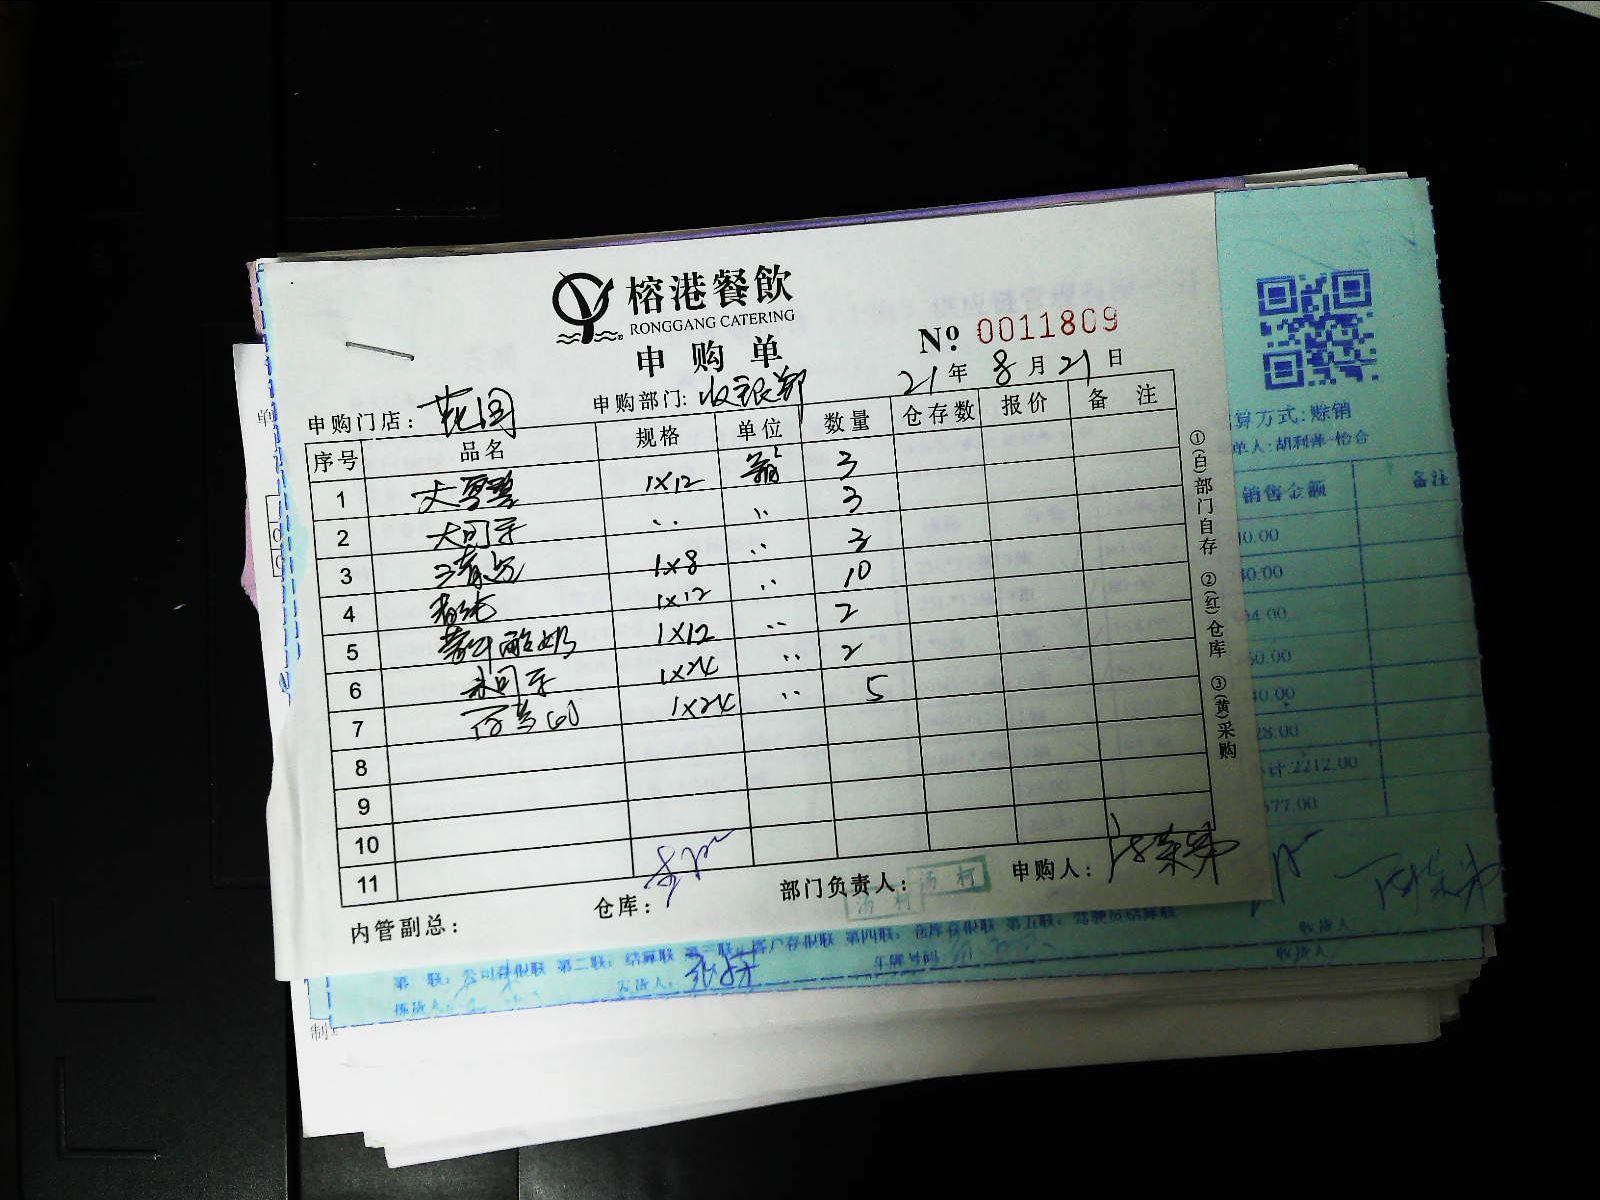 榕港餐飲
RONGGANG CATERING
申购单
No. 0011809
21年 8月 21日
申购门店: 花园 申购部门: 收银部
序号 品名 规格 单位 数量 仓存数 报价 备注
1 大雪碧 1×12 箱 3
2 大可乐 〃 〃 3
3 1×8 〃 3
4 1×12 〃 10
5 蒙牛酸奶 1×12 〃 2
6 1×24 〃 2
7 1×24 〃 5
8
9
10
11
内管副总: 仓库: 部门负责人: 汤柯 申购人:
汤柯
①(白)部门自存 ②(红)仓库 ③(黄)采购
算方式:赊销
单人:胡利萍-怡合
销售金额 备注
40.00
94.00
50.00
40.00
28.00
计:2212.00
577.00
第 联: 公司存根联 第二联: 结算联 第三联: 客户存根联 第四联: 仓库存根联 第五联: 驾驶员结算联
收货人
拣货人: 发货人: 车牌号码 收货人
单
制